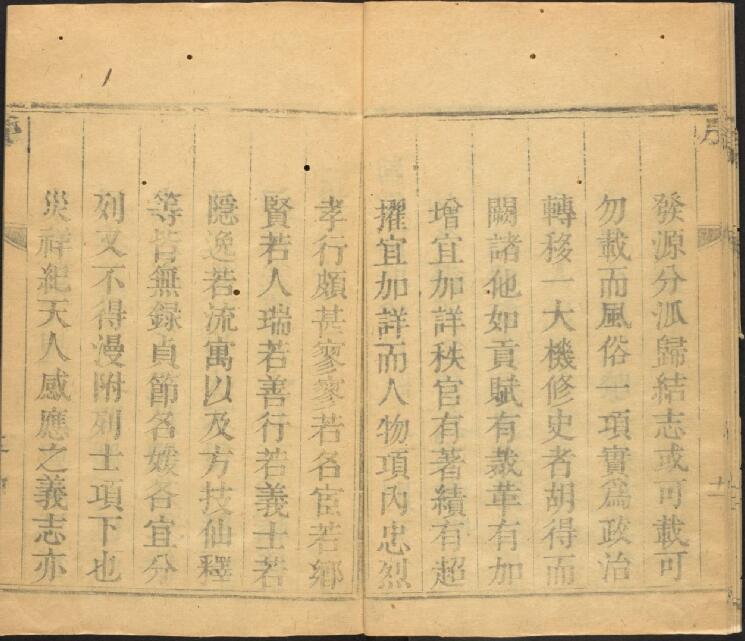 發源分派歸結志或可載可
勿載而風俗一項實爲政治
轉移一大機修史者胡得而
闕諸他如貢賦有裁革有加
增宜加詳秩官有著績有超
擢宜加詳而人物項內忠烈
孝行頗甚寥寥若名宦若鄉
賢若人瑞若善行若義士若
隱逸若流寓以及方技仙釋
等皆無録貞節名媛各宜分
列又不得漫附列士項下也
災祥紀天人感應之義志亦